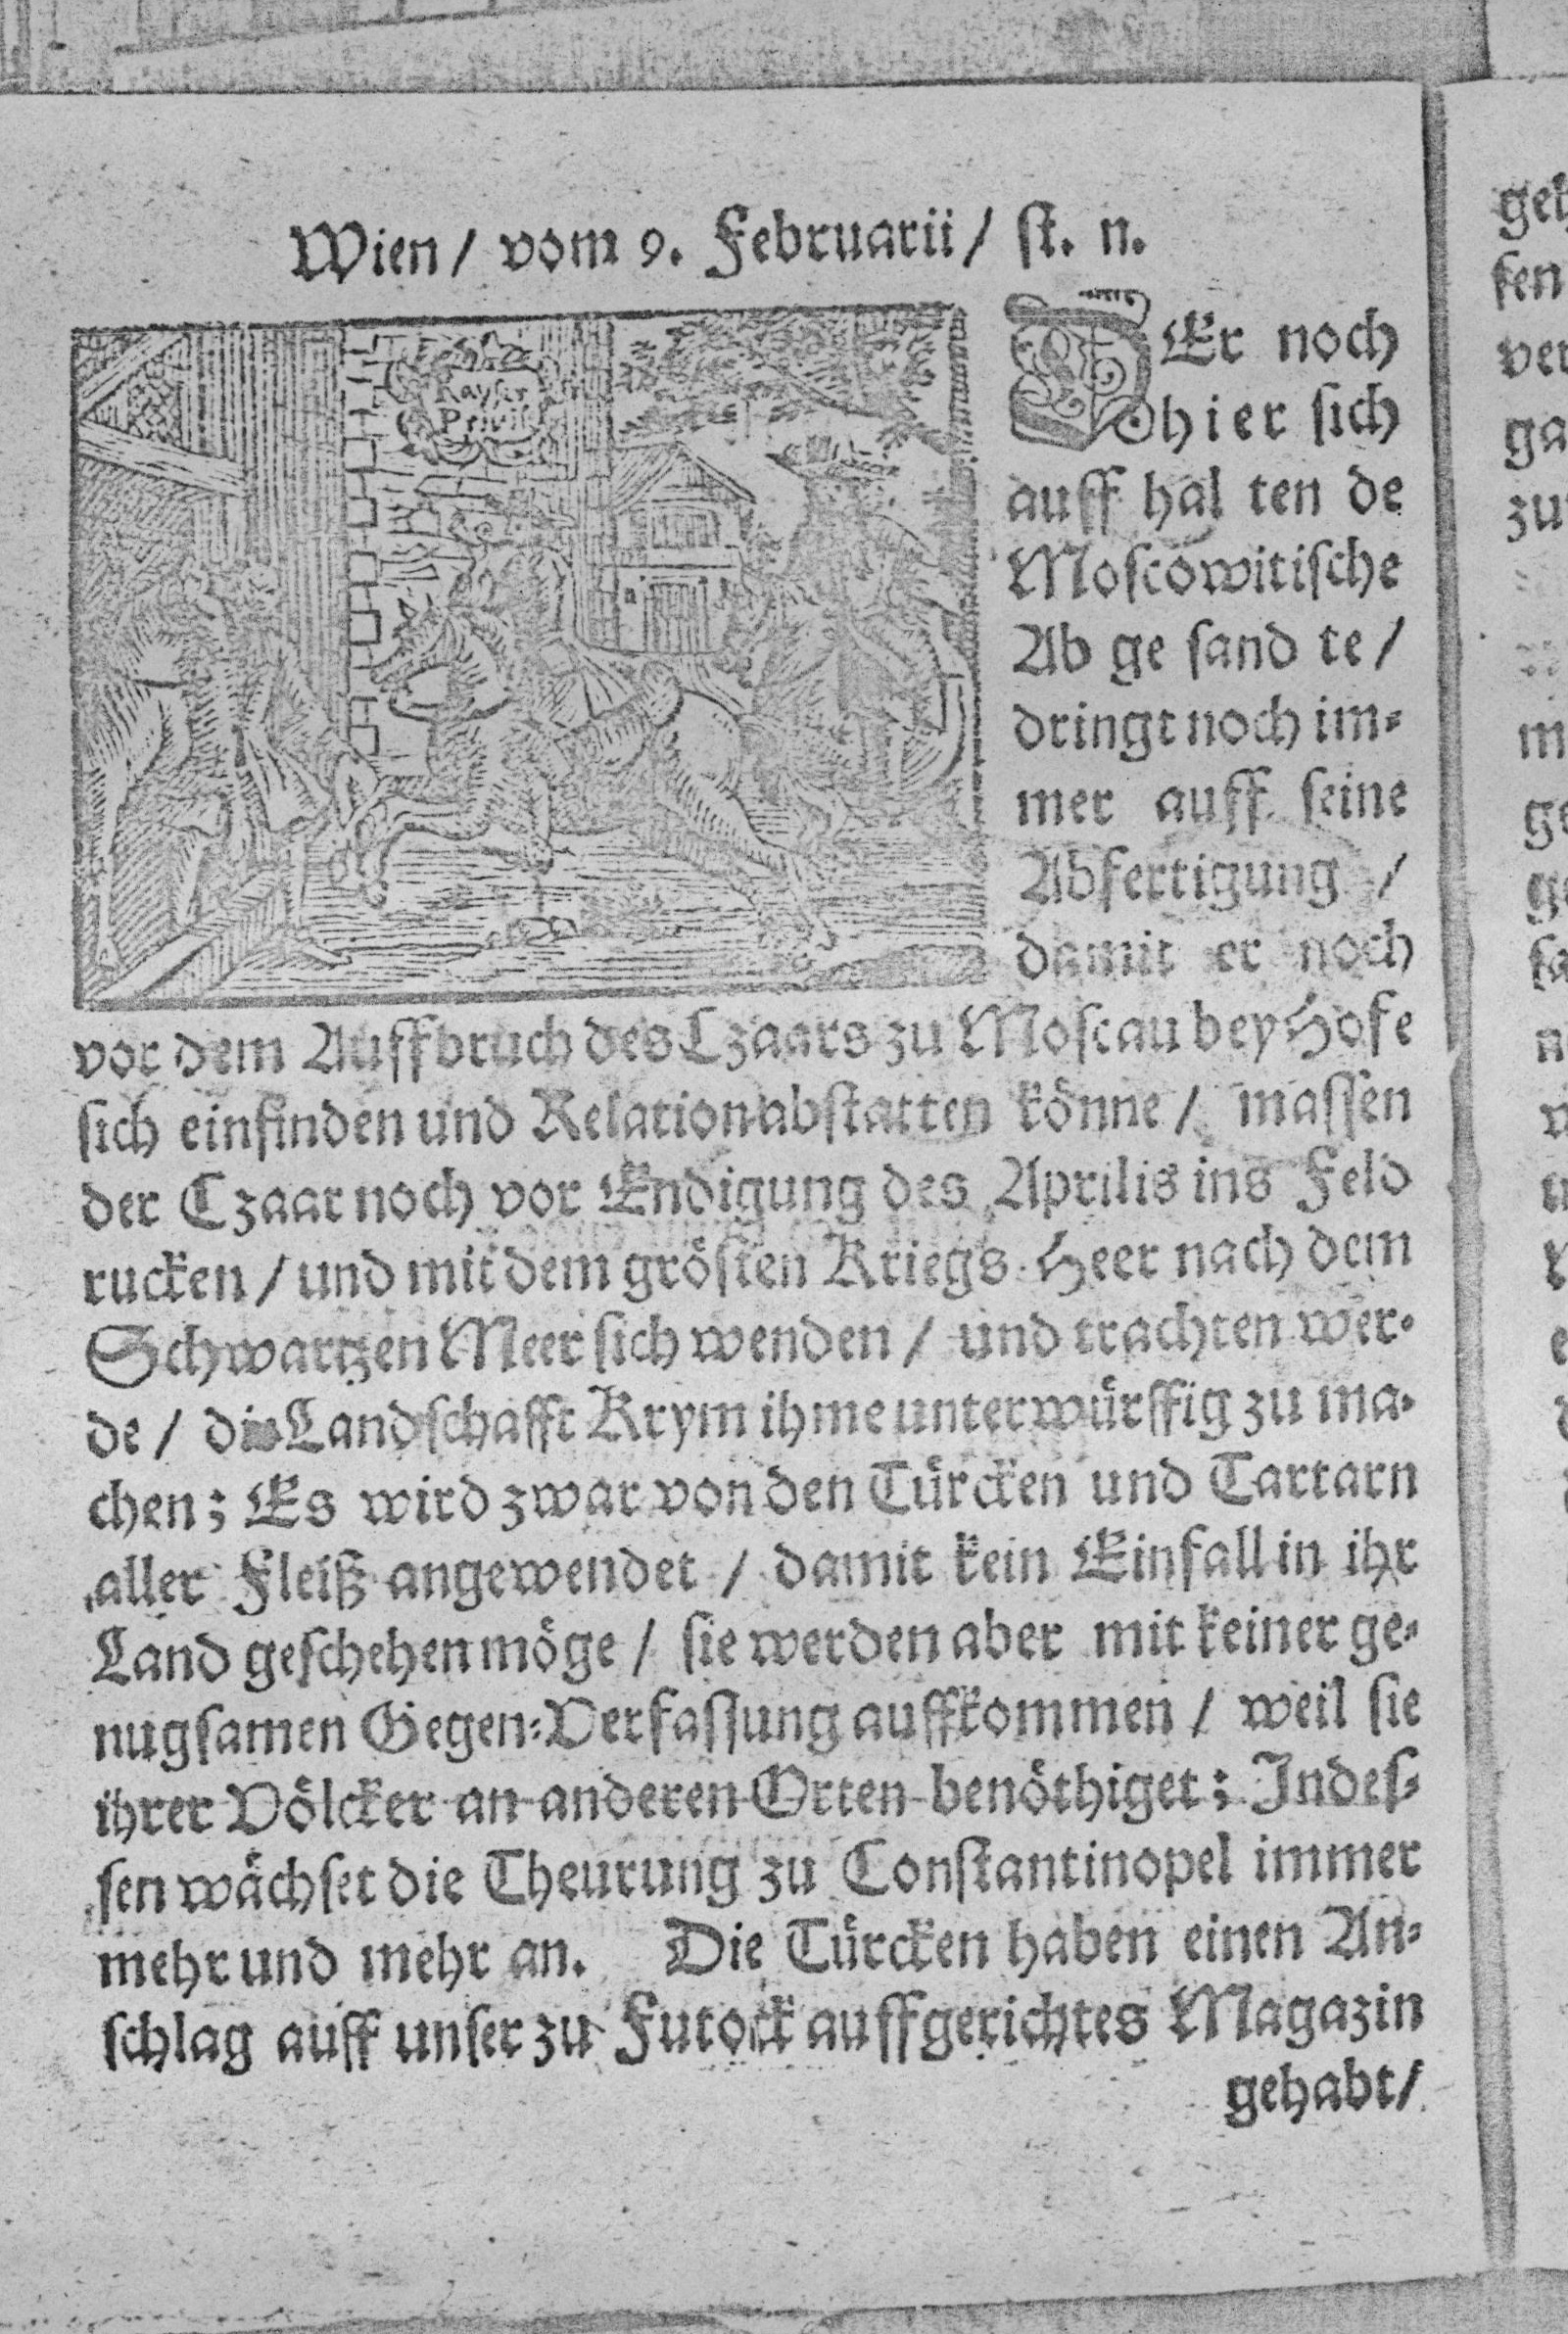 Wien / vom 9. Februarii / st. n.
Kayser
Privil
DEr noch
hier sich
auff hal ten de
Moscowitische
Ab ge sand te /
dringt noch im-
mer auff seine
Abfertigung /
damit er noch
vor dem Auffbruch des Czaars zu Moscau bey Hofe
sich einfinden und Relation abstatten könne / massen
der Czaar noch vor Endigung des Aprilis ins Feld
rucken / und mit dem grösten Kriegs-Heer nach dem
Schwartzen Meer sich wenden / und trachten wer-
de / die Landschafft Krym ihme unterwürffig zu ma-
chen; Es wird zwar von den Türcken und Tartarn
aller Fleiß angewendet / damit kein Einfall in ihr
Land geschehen möge / sie werden aber mit keiner ge-
nugsamen Gegen-Verfassung auffkommen / weil sie
ihrer Völcker an anderen Orten benöthiget; Indes-
sen wächset die Theurung zu Constantinopel immer
mehr und mehr an. Die Türcken haben einen An-
schlag auff unser zu Futock auffgerichtes Magazin
gehabt /
geh
ken
ver
ga
zu
m
ge
ge